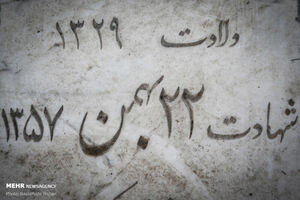 ولادت ۱۳۲۹
شهادت ۲۲ بهمن ۱۳۵۷
MEHR NEWSAGENCY